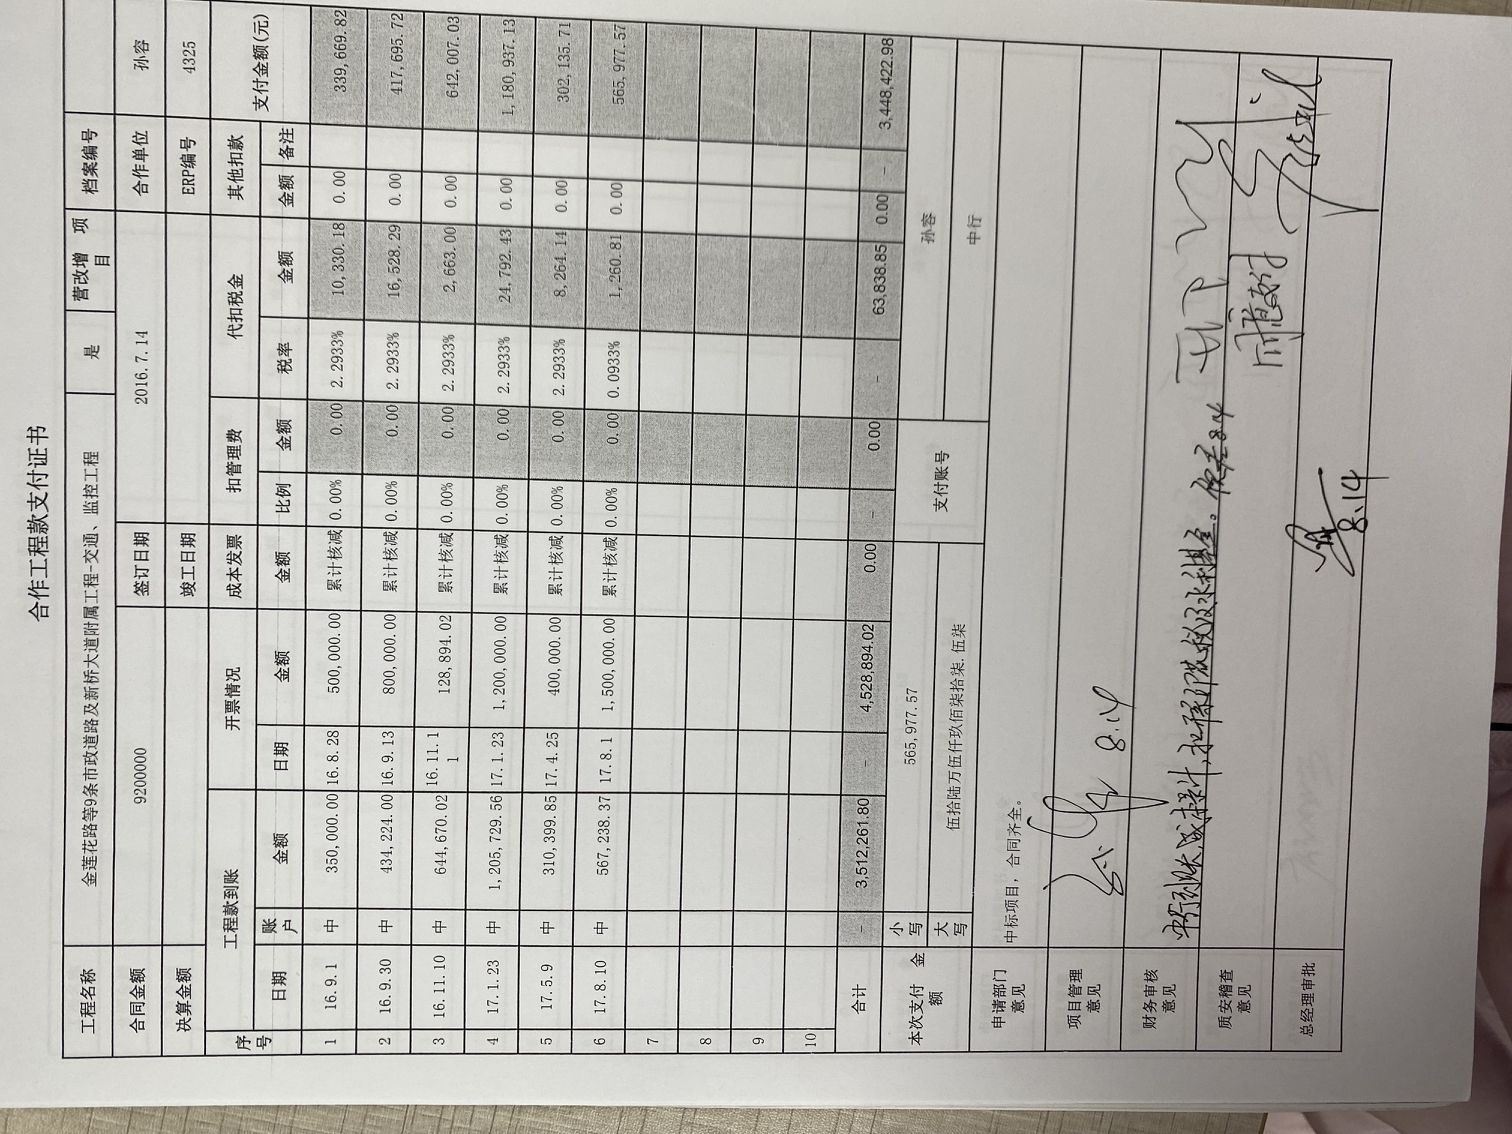 合作工程款支付证书
工程名称 金莲花路等9条市政道路及新桥大道附属工程-交通、监控工程 是 营改增 项目 档案编号
合同金额 9200000 签订日期 2016.7.14 合作单位 孙容
决算金额 竣工日期 ERP编号 4325
序号 工程款到账 开票情况 成本发票 扣管理费 代扣税金 其他扣款 支付金额(元)
日期 账户 金额 日期 金额 金额 比例 金额 税率 金额 金额 备注
1 16.9.1 中 350,000.00 16.8.28 500,000.00 累计核减 0.00% 0.00 2.2933% 10,330.18 0.00 339,669.82
2 16.9.30 中 434,224.00 16.9.13 800,000.00 累计核减 0.00% 0.00 2.2933% 16,528.29 0.00 417,695.72
3 16.11.10 中 644,670.02 16.11.11 128,894.02 累计核减 0.00% 0.00 2.2933% 2,663.00 0.00 642,007.03
4 17.1.23 中 1,205,729.56 17.1.23 1,200,000.00 累计核减 0.00% 0.00 2.2933% 24,792.43 0.00 1,180,937.13
5 17.5.9 中 310,399.85 17.4.25 400,000.00 累计核减 0.00% 0.00 2.2933% 8,264.14 0.00 302,135.71
6 17.8.10 中 567,238.37 17.8.1 1,500,000.00 累计核减 0.00% 0.00 0.0933% 1,260.81 0.00 565,977.57
7
8
9
10
合计 - 3,512,261.80 - 4,528,894.02 0.00 - 0.00 - 63,838.85 0.00 - 3,448,422.98
本次支付金额 小写 565,977.57 支付账号 孙容
大写 伍拾陆万伍仟玖佰柒拾柒.伍柒 中行
申请部门意见 中标项目，合同齐全。
项目管理意见 8.14
财务审核意见 中行到账,成本累计,扣除印花税及水利基金。 8.14
质安稽查意见 同意支付
总经理审批 8.14